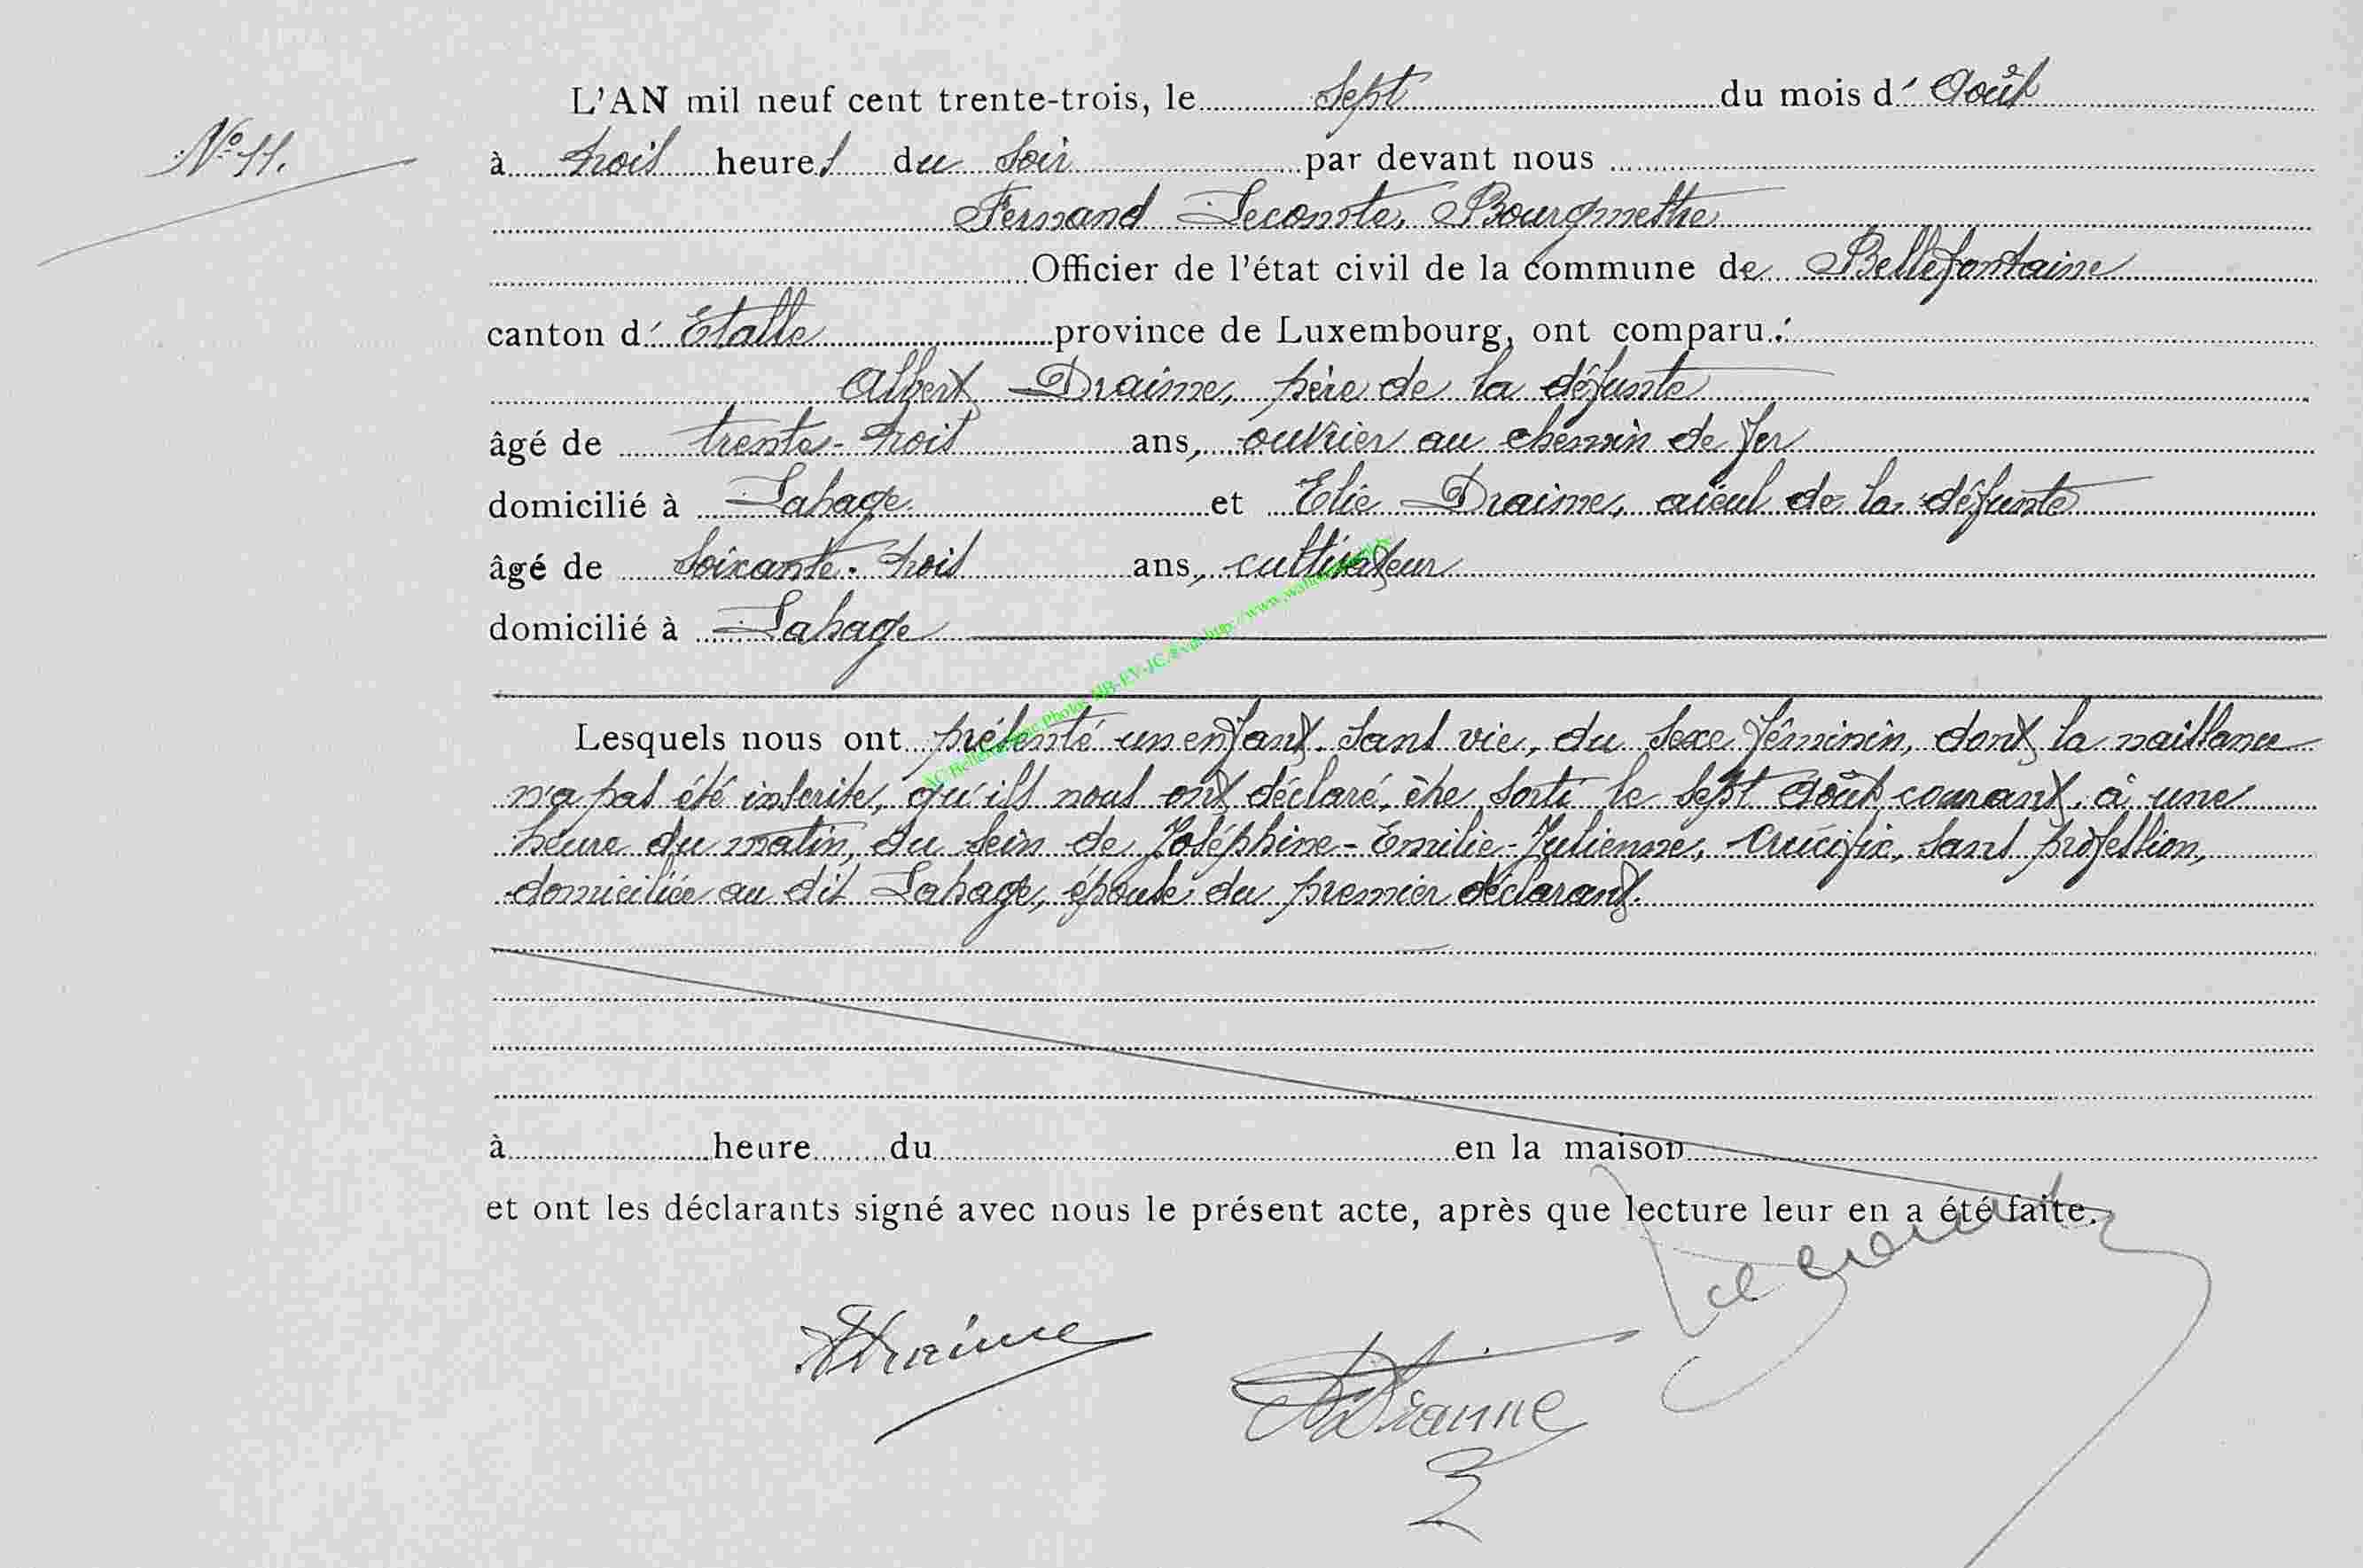 L'AN mil neuf cent trente-trois, le sept du mois d' Août
N° 11.
à trois heures du soir par devant nous
Fernand Lecomte, Bourgmestre
Officier de l'état civil de la commune de Bellefontaine
canton d' Etalle province de Luxembourg, ont comparu :
Albert Draime, père de la défunte
âgé de trente-trois ans, ouvrier au chemin de fer
domicilié à Lahage et Elie Draime, aïeul de la défunte
âgé de soixante-trois ans, cultivateur
domicilié à Lahage
Lesquels nous ont présenté un enfant sans vie, du sexe féminin, dont la naissance
n'a pas été inscrite, qu'ils nous ont déclaré, être sorti le sept août courant, à une
heure du matin, du sein de Joséphine-Emilie-Julienne, Crucifix, sans profession,
domiciliée au dit Lahage, épouse du premier déclarant.
à heure du en la maison
et ont les déclarants signé avec nous le présent acte, après que lecture leur en a été faite.
ADraime